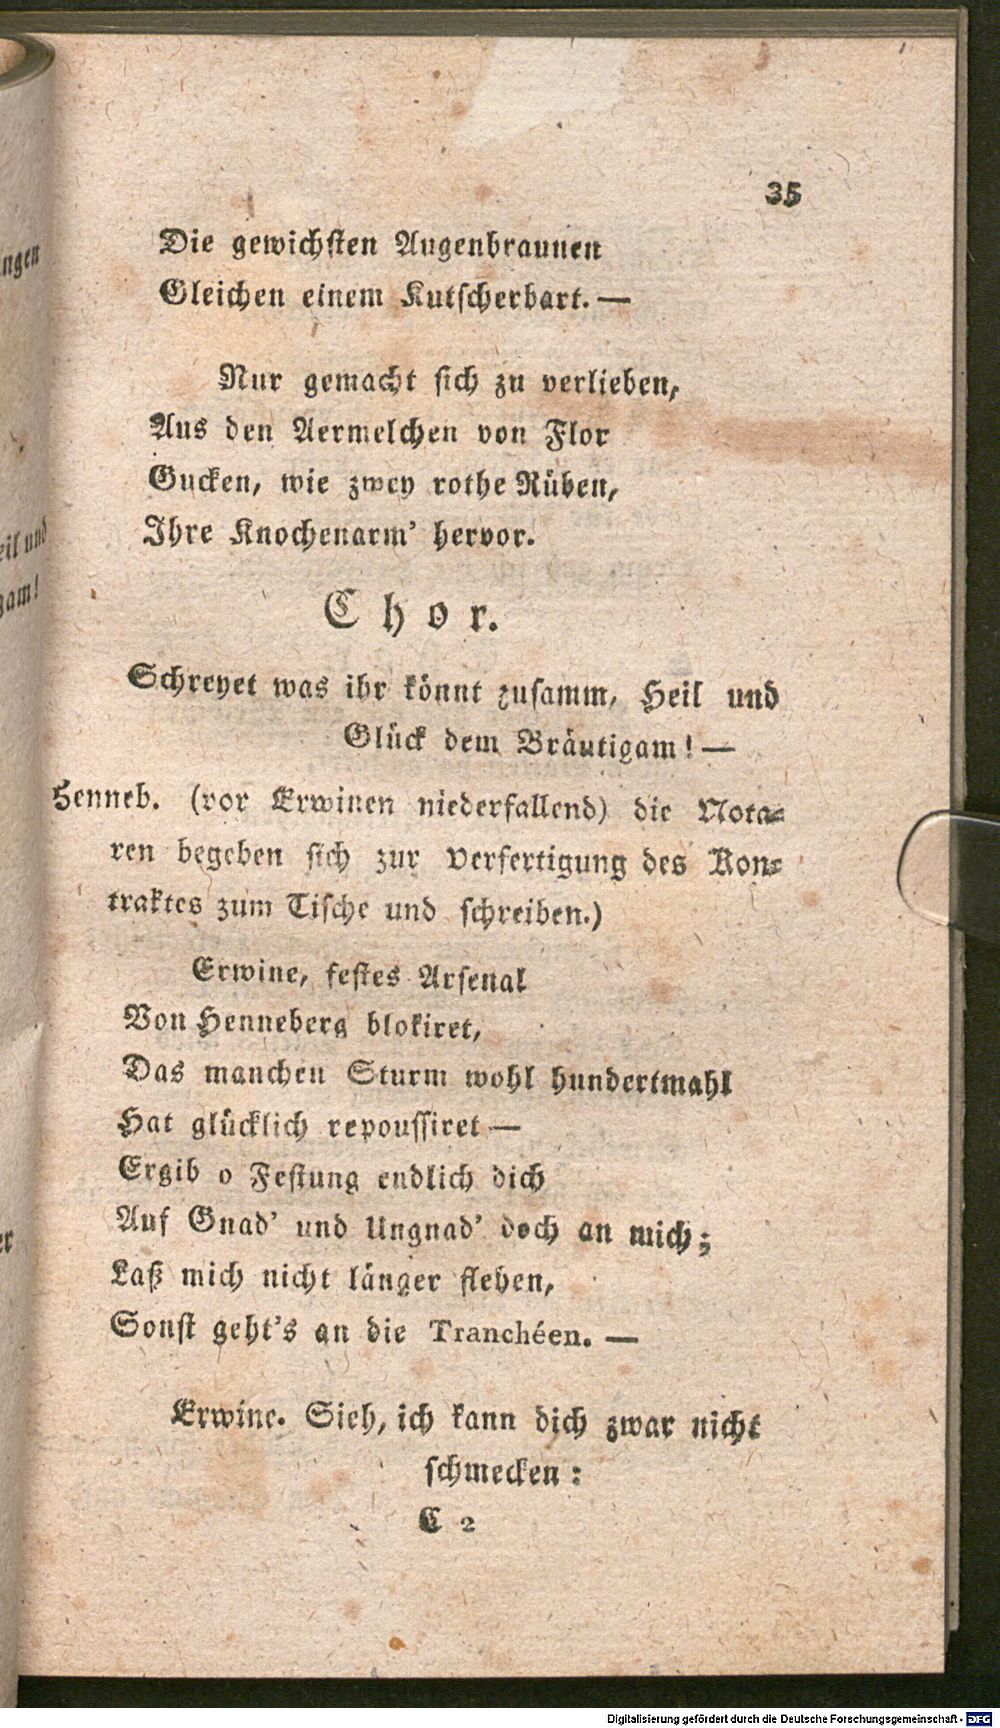 35
Die gewichsten Augenbraunen
Gleichen einem Kutscherbart. —
Nur gemacht sich zu verlieben,
Aus den Aermelchen von Flor
Gucken, wie zwey rothe Rüben,
Ihre Knochenarm' hervor.
Chor.
Schreyet was ihr könnt zusamm, Heil und
Glück dem Bräutigam! —
Henneb. (vor Erwinen niederfallend) die Nota-
ren begeben sich zur Verfertigung des Kon-
traktes zum Tische und schreiben.)
Erwine, festes Arsenal
Von Henneberg blokiret,
Das manchen Sturm wohl hundertmahl
Hat glücklich repoussiret —
Ergib o Festung endlich dich
Auf Gnad' und Ungnad' doch an mich;
Laß mich nicht länger flehen,
Sonst geht's an die Tranchéen. —
Erwine. Sieh, ich kann dich zwar nicht
schmecken:
C 2
Digitalisierung gefördert durch die Deutsche Forschungsgemeinschaft - DFG